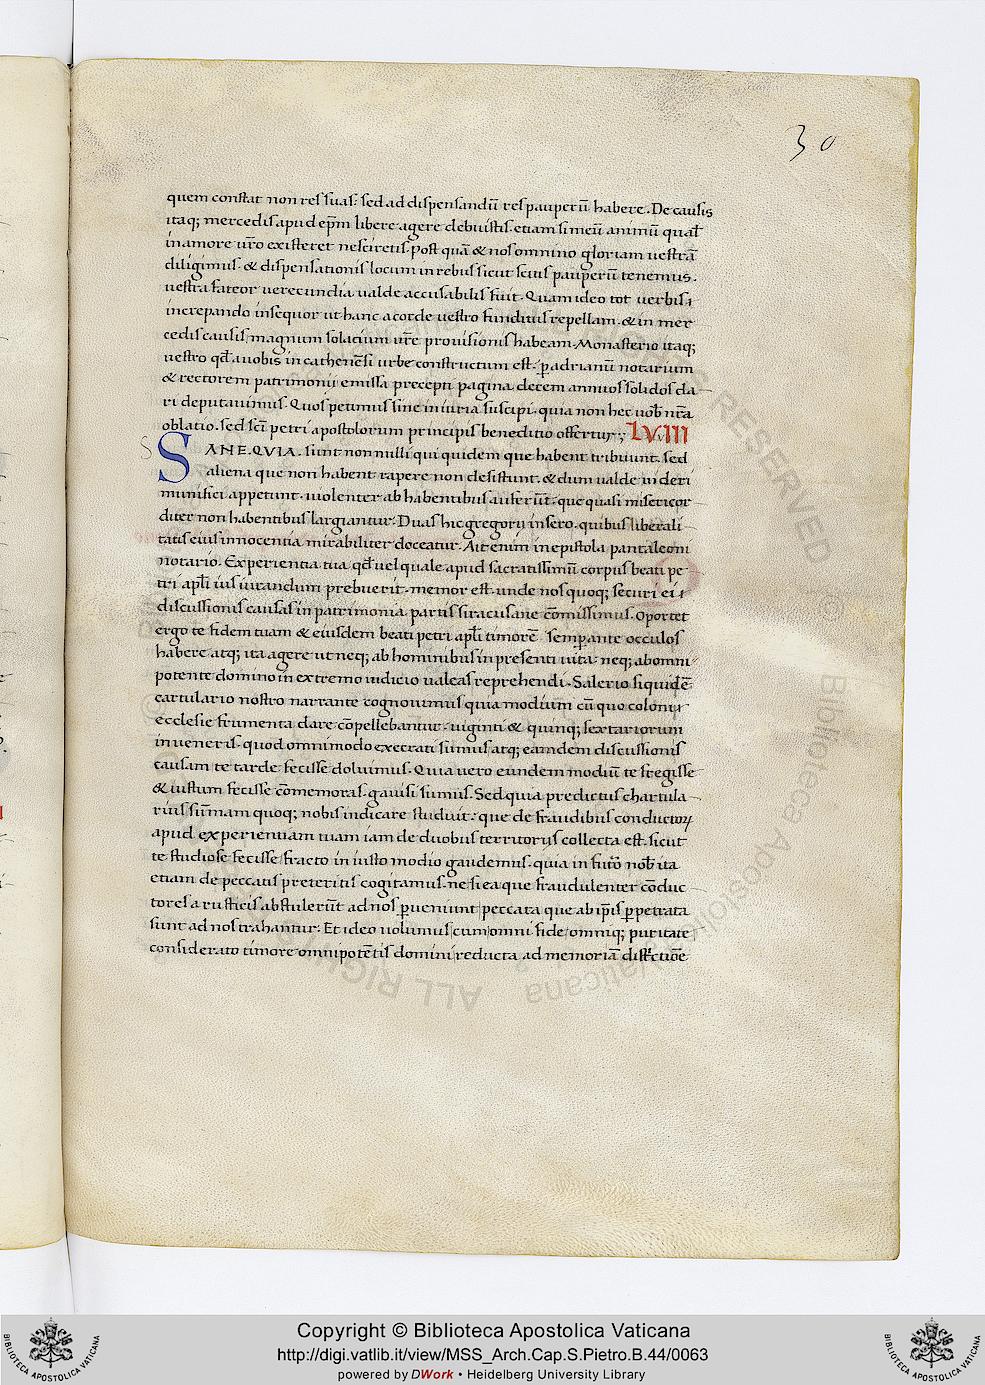 30
quem constat non res suas: sed ad dispensandū res pauperū habere. De causis
itaq; mercedis apud ep̄m libere agere debuistis. etiam si meū animū qual̄
in amore ur̄o existeret nesciretis. post quā & nos omnino gloriam uestrā
diligimus. & dispensationis locum in rebus sicut scitis pauperū tenemus.
uestra fateor uerecundia ualde accusabilis fuit. Quam ideo tot uerbis i
increpando insequor ut hanc a corde uestro funditus repellam. & in mer
cedis causis magnum solacium ur̄e prouisionis habeam. Monasterio itaq;
uestro qd̄ a uobis in cathenēsi urbe constructum est. p adrianū notarium
& rectorem patrimonii emissa precepti pagina decem annuos solidos da
ri deputauimus. Quos petimus sine iniuria suscipi. quia non hec uob̄ nr̄a
oblatio. sed sc̄i petri apostolorum principis beneditio offertur; LVIII
S SANE. QVIA. sunt non nulli qui quidem que habent tribuunt. sed
aliena que non habent rapere non desistunt. & dum ualde uideri
munifici appetunt. uiolenter ab habentibus auferūt. que quasi misericor
diter non habentibus largiantur. Duas hic gregorij insero. quibus liberali
tatis eius innocentia mirabiliter doceatur. Ait enim in epistola pantaleoni
notario. Experientia tua qd̄ uel quale apud sacratissimū corpus beati pe
tri apl̄i ius iurandum prebuerit. memor est. unde nos quoq; securi ei i
discussionis causas in patrimonia partis siracusane cōmisimus. Oportet
ergo te fidem tuam & eiusdem beati petri apl̄i timorē semp ante occulos
habere atq; ita agere ut neq; ab hominibus in presenti uita. neq; ab omni
potente domino in extremo iudicio ualeas reprehendi. Salerio siquidē
cartulario nostro narrante cognouimus quia modium cū quo coloni
ecclesie frumenta dare cōpellebantur. uiginti & quinq; sextariorum
inueneris. quod omnimodo execrati sumus atq; eandem discussionis
causam te tarde fecisse doluimus. Quia uero eundem modiū te fregisse
& iustum fecisse cōmemoras. gauisi sumus. Sed quia predictus chartula
rius sūmam quoq; nobis indicare studuit. que de fraudibus conductoꝝ
apud experientiam tuam iam de duobus territorijs collecta est. sicut
te studiose fecisse fracto in iusto modio gaudemus. quia in futō nob̄ ita
etiam de peccatis preteritis cogitamus. ne si ea que fraudulenter cōduc
tores a rusticis abstulerūt ad nos pueniunt peccata que ab ip̄is ppetrata
sunt ad nos trahantur. Et ideo uolumus cum omni fide omniq; puritate
considerato timore omnipotētis domini reducta ad memoriā
ALL RIGHTS RESERVED
Biblioteca Apostolica Vaticana
Copyright © Biblioteca Apostolica Vaticana
http://digi.vatlib.it/view/MSS_Arch.Cap.S.Pietro.B.44/0063
powered by DWork • Heidelberg University Library
BIBLIOTECA APOSTOLICA VATICANA
BIBLIOTECA APOSTOLICA VATICANA